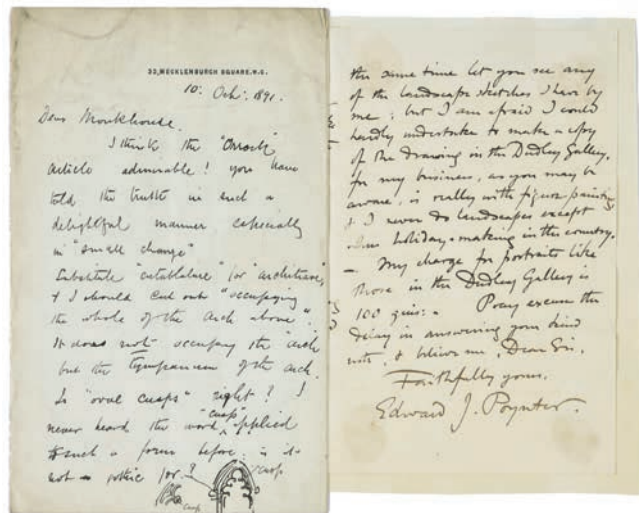 33, MECKLENBURGH SQUARE. W.C.
10. Oct. 1891.
Dear Monkhouse.
I think the "Orrock"
article admirable! you have
told the truth in such a
delightful manner especially
in "small change"
Substitute "entablature" for "architrave"
& I should cut out "occupying
the whole of the arch above".
It does not occupy the arch
but the Tympanum of the arch.
Is "oval cusps" right? I
never heard the word "cusp" applied
to such a form before: is it
not a gothic for?
cusp
cusp
the same time let you see any
of the landscape sketches I have by
me; but I am afraid I could
hardly undertake to make a copy
of the drawing in the Dudley Gallery.
for my business, as you may be
aware, is really with figure painting
& I never do landscapes except
when holiday-making in the country.
— My charge for portraits like
those in the Dudley Gallery is
100 gns: - Pray excuse the
delay in answering your kind
note, & believe me, Dear Sir.
Faithfully yours.
Edward J. Poynter.